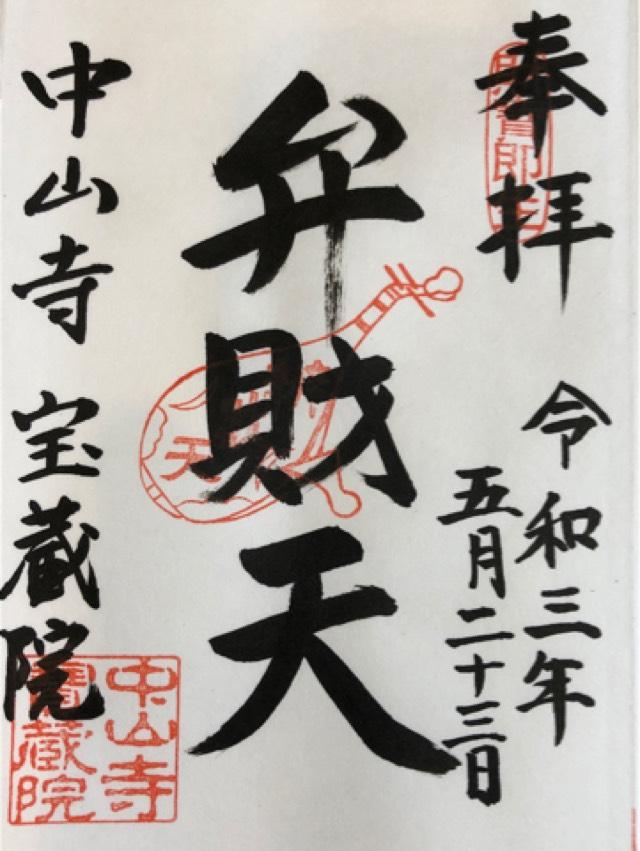 奉拝
令和三年
五月二十三日
弁財天
中山寺 宝蔵院
中山寺
寳蔵院